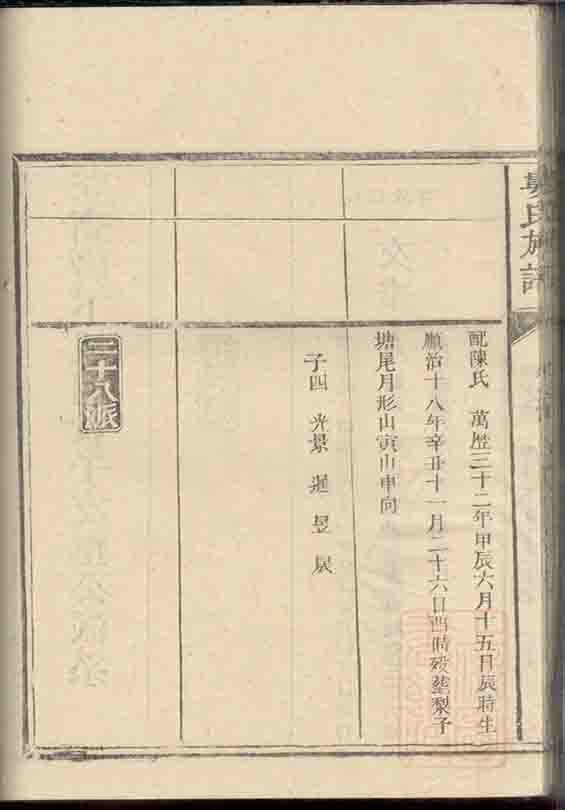 氏族譜
配陳氏 萬歷三十二年甲辰六月十五日辰時生
順治十八年辛丑十一月二十六日酉時歿塟梨子
塘尾月形山寅山申向
子四 光景 暹 昱
二十八派